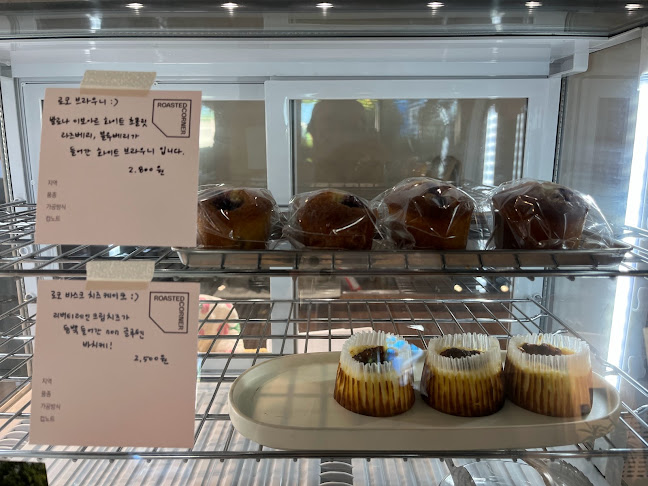 로코 브라우니 :)
ROASTED
CORNER
발로나 이보아르 화이트 초콜릿
라즈베리, 블루베리가
들어간 화이트 브라우니 입니다.
2,800원
지역
품종
가공방식
컵노트
로코 바스크 치즈케이크 :)
ROASTED
CORNER
크림치즈가
듬뿍 들어간 non 글루텐
바치케!
2,500원
지역
품종
가공방식
컵노트